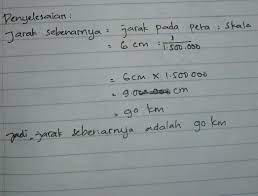 Penyelesaian:
Jarak sebenarnya = jarak pada peta : skala
= 6 cm : 1/1.500.000
= 6 cm x 1.500.000
= 9.000.000 cm
= 90 km
Jadi, jarak sebenarnya adalah 90 km